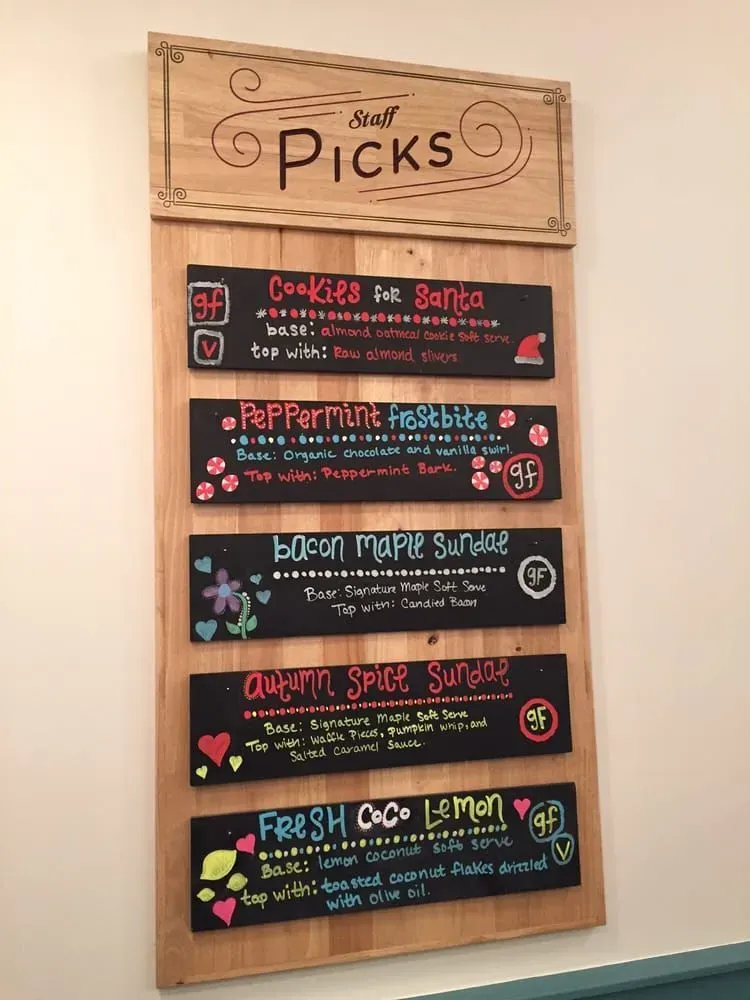 Staff
PICKS
gf
Cookies for Santa
V
base: almond oatmeal cookie soft serve.
top with: Raw almond slivers
Peppermint frostbite
Base: Organic chocolate and vanilla swirl.
Top with: Peppermint Bark.
gf
bacon maple sundae
Base: Signature Maple Soft Serve
Top with: Candied Bacon
gF
autumn spice sundae
Base: Signature Maple Soft Serve
Top with: Waffle Pieces, pumpkin whip, and
Salted Caramel Sauce.
gF
FRESH COCO LEMON
gf
Base: lemon coconut soft serve
V
top with: toasted coconut flakes drizzled
with olive oil.